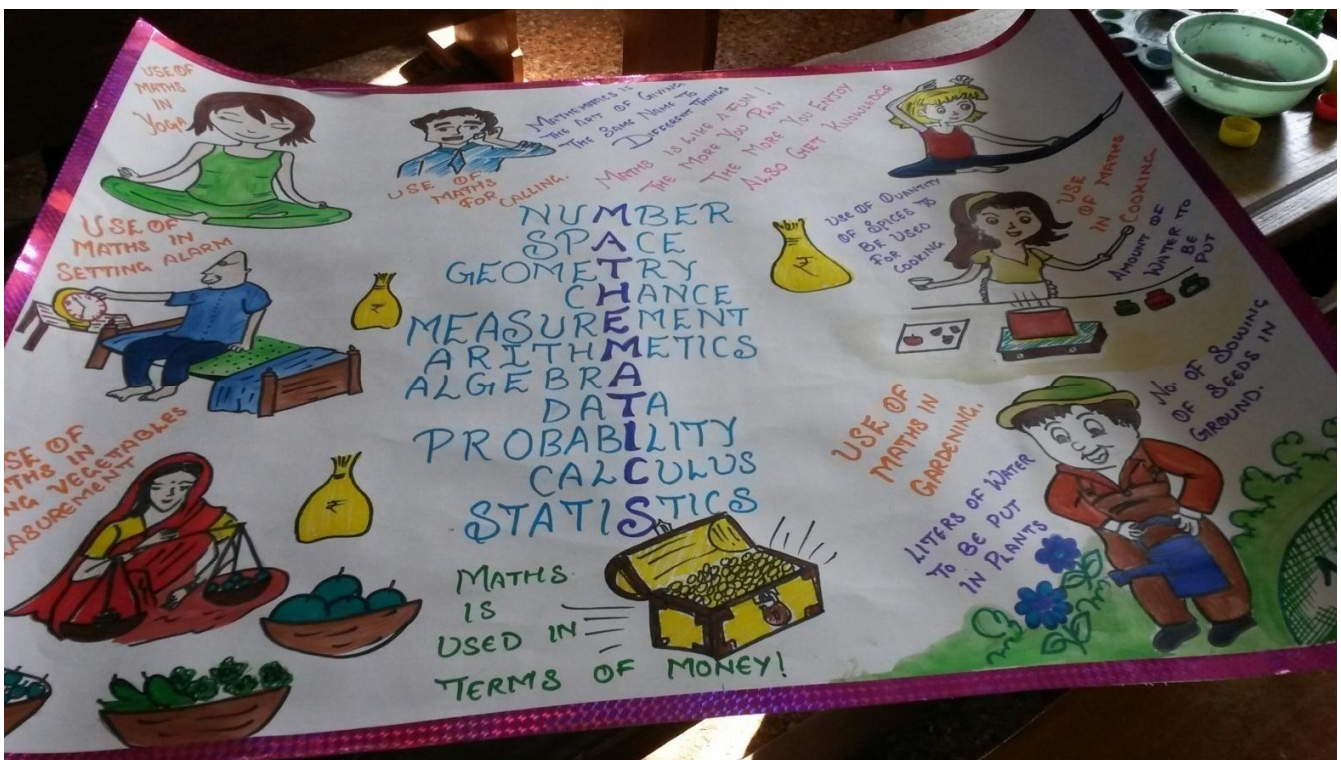 USE OF
MATHS
IN
YOGA
USE OF
MATHS
FOR CALLING.
MATHEMATICS IS
THE ART OF GIVING
THE SAME NAME TO
DIFFERENT THINGS
MATHS IS LIKE A FUN!
THE MORE YOU PAY
THE MORE YOU ENJOY
ALSO GET KNOWLEDGE
USE OF
MATHS IN
SETTING ALARM
NUMBER
SPACE
GEOMETRY
CHANCE
MEASUREMENT
ARITHMETICS
ALGEBRA
DATA
PROBABILITY
CALCULUS
STATISTICS
₹
₹
₹
USE OF QUANTITY
OF SPICES TO
BE USED
FOR COOKING
USE
OF MATHS
IN COOKING
AMOUNT OF
WATER TO
BE
PUT
USE OF
MATHS IN
GARDENING.
NO. OF SOWING
OF SEEDS IN
GROUND.
LITERS OF WATER
TO BE PUT
IN PLANTS
SE OF
THS IN
NG VEGETABLES
ASUREMENT
MATHS
IS
USED IN
TERMS OF MONEY!